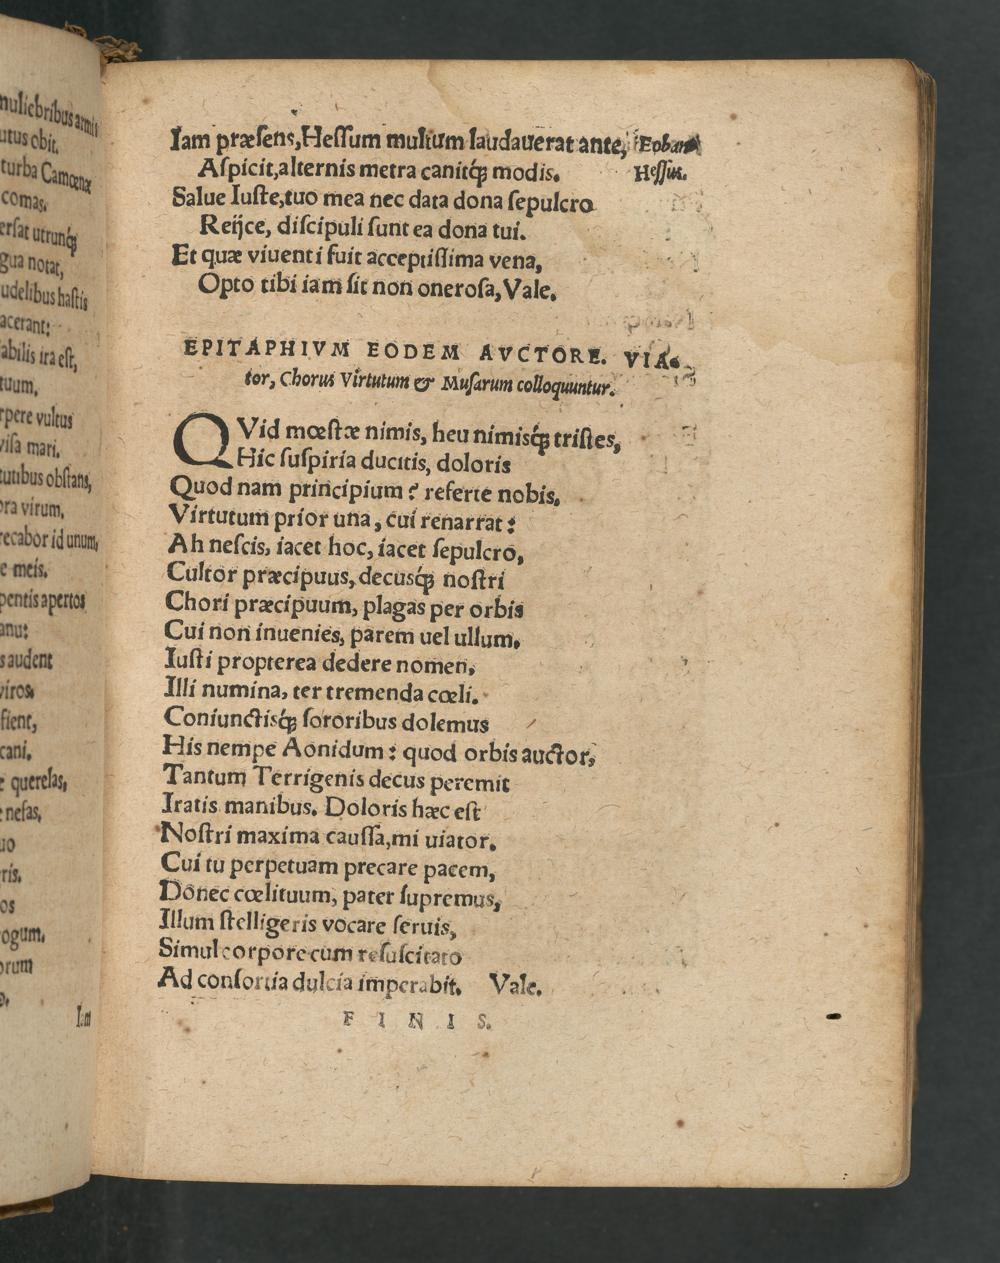 muliebribus armis
utus obit.
turba Camœnæ
comas.
ersat utrunq́;
gua notat,
udelibus hastis
acerant:
abilis ira est,
tuum,
rpere vultus
visa mari.
tutibus obstans,
ora virum,
recabor id unum,
e meis.
pentis apertos
anu:
s audent
viros.
fient,
cani.
e querelas,
nefas,
uo
ris.
os
ogum.
orum
Iam
Iam præsens, Hessum multum laudauerat ante, Eoban
Aspicit, alternis metra canitq́; modis. Hessus.
Salue Iuste, tuo mea nec data dona sepulcro
Reijce, discipuli sunt ea dona tui.
Et quæ viuenti fuit acceptissima vena,
Opto tibi iam sit non onerosa, Vale.
EPITAPHIVM EODEM AVCTORE. VIA-
tor, Chorus Virtutum & Musarum colloquuntur.
QVid mœstæ nimis, heu nimisq́; tristes,
Hic suspiria ducitis, doloris
Quod nam principium? referte nobis.
Virtutum prior una, cui renarrat:
Ah nescis, iacet hoc, iacet sepulcro,
Cultor præcipuus, decusq́; nostri
Chori præcipuum, plagas per orbis
Cui non inuenies, parem uel ullum.
Iusti propterea dedere nomen,
Illi numina, ter tremenda cœli.
Coniunctisq́; sororibus dolemus
His nempe Aonidum: quod orbis auctor,
Tantum Terrigenis decus peremit
Iratis manibus. Doloris hæc est
Nostri maxima caussa, mi uiator.
Cui tu perpetuam precare pacem,
Donec cœlituum, pater supremus,
Illum stelligeris vocare seruis,
Simul corpore cum resuscitato
Ad consortia dulcia imperabit. Vale.
FINIS.